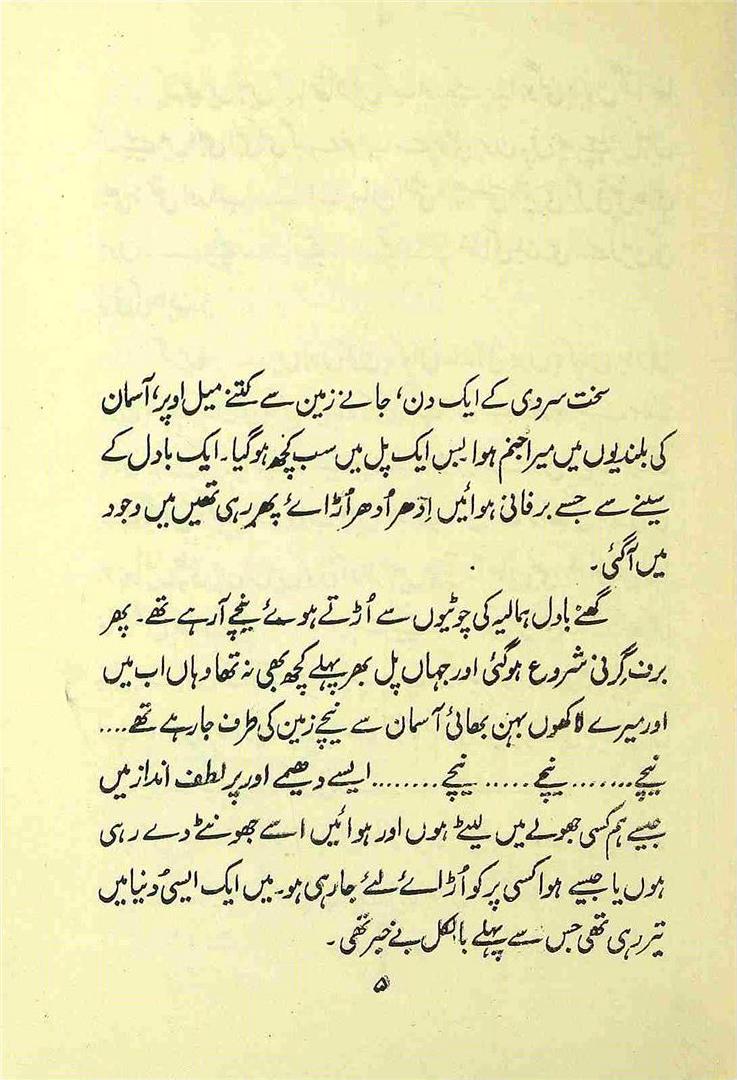 سخت سردی کے ایک دن، جانے زمین سے کتنے میل اوپر، آسمان
کی بلندیوں میں میرا جنم ہوا بس ایک پل میں سب کچھ ہوگیا۔ ایک بادل کے
سینے سے جسے برفانی ہوائیں اِدھر اُدھر اُڑائے پھر رہی تھیں میں وجود
میں آگئی۔
گھنے بادل ہمالیہ کی چوٹیوں سے اُڑتے ہوئے نیچے آرہے تھے۔ پھر
برف گِرنی شروع ہوگئی اور جہاں پل بھر پہلے کچھ بھی نہ تھا وہاں اب میں
اور میرے لاکھوں بہن بھائی آسمان سے نیچے زمین کی طرف جارہے تھے....
نیچے....... نیچے..... نیچے........ ایسے دھیمے اور پر لطف انداز میں
جیسے ہم کسی جھولے میں لیٹے ہوں اور ہوائیں اسے جھونٹے دے رہی
ہوں یا جیسے ہوا کسی پر کو اُڑائے لئے جارہی ہو۔ میں ایک ایسی دُنیا میں
تیر رہی تھی جس سے پہلے بالکل بے خبر تھی۔
۵